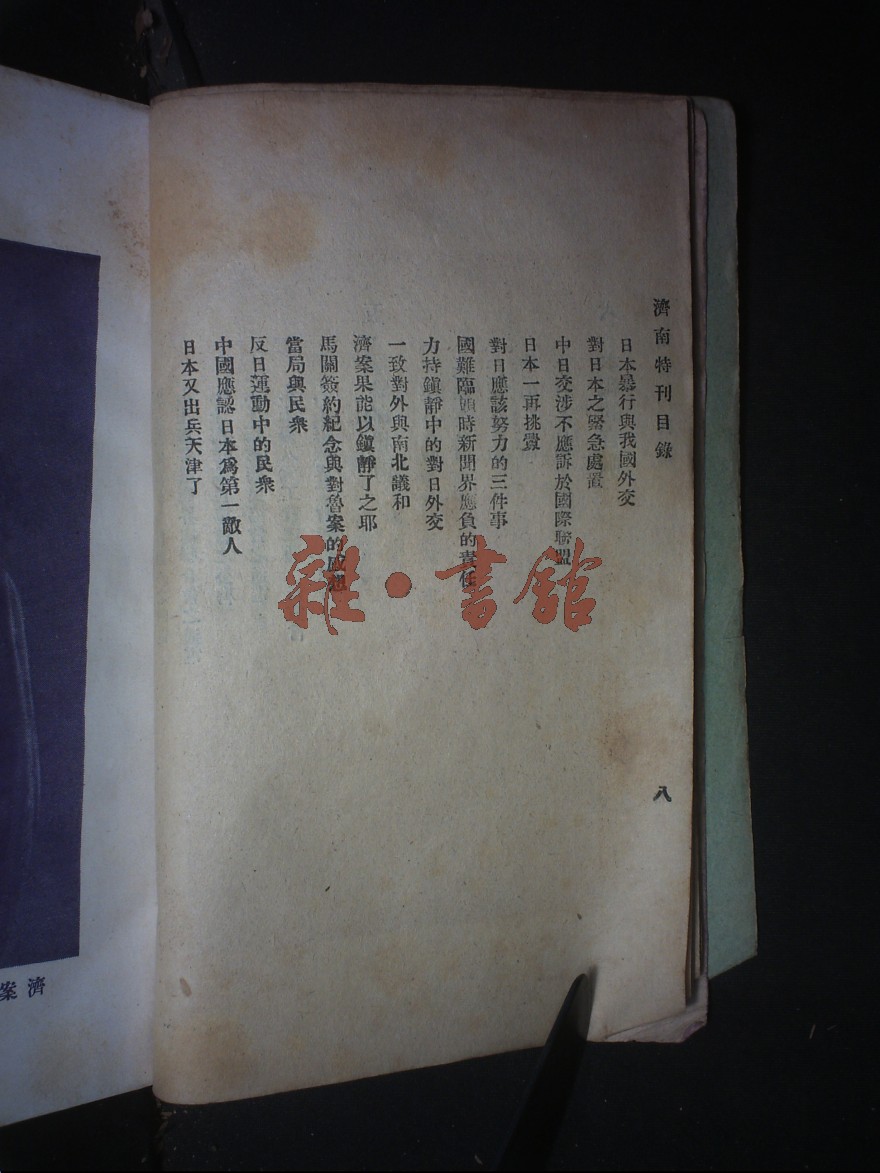 濟南特刊目錄
日本暴行與我國外交
對日本之緊急處置
中日交涉不應訴於國際聯盟
日本一再挑釁
對日應該努力的三件事
國難臨頭時新聞界應負的責任
力持鎮靜中的對日外交
一致對外與南北議和
濟案果能以鎮靜了之耶
馬關簽約紀念與對魯案的感想
當局與民衆
反日運動中的民衆
中國應認日本爲第一敵人
日本又出兵天津了
八
濟案
雜·書館